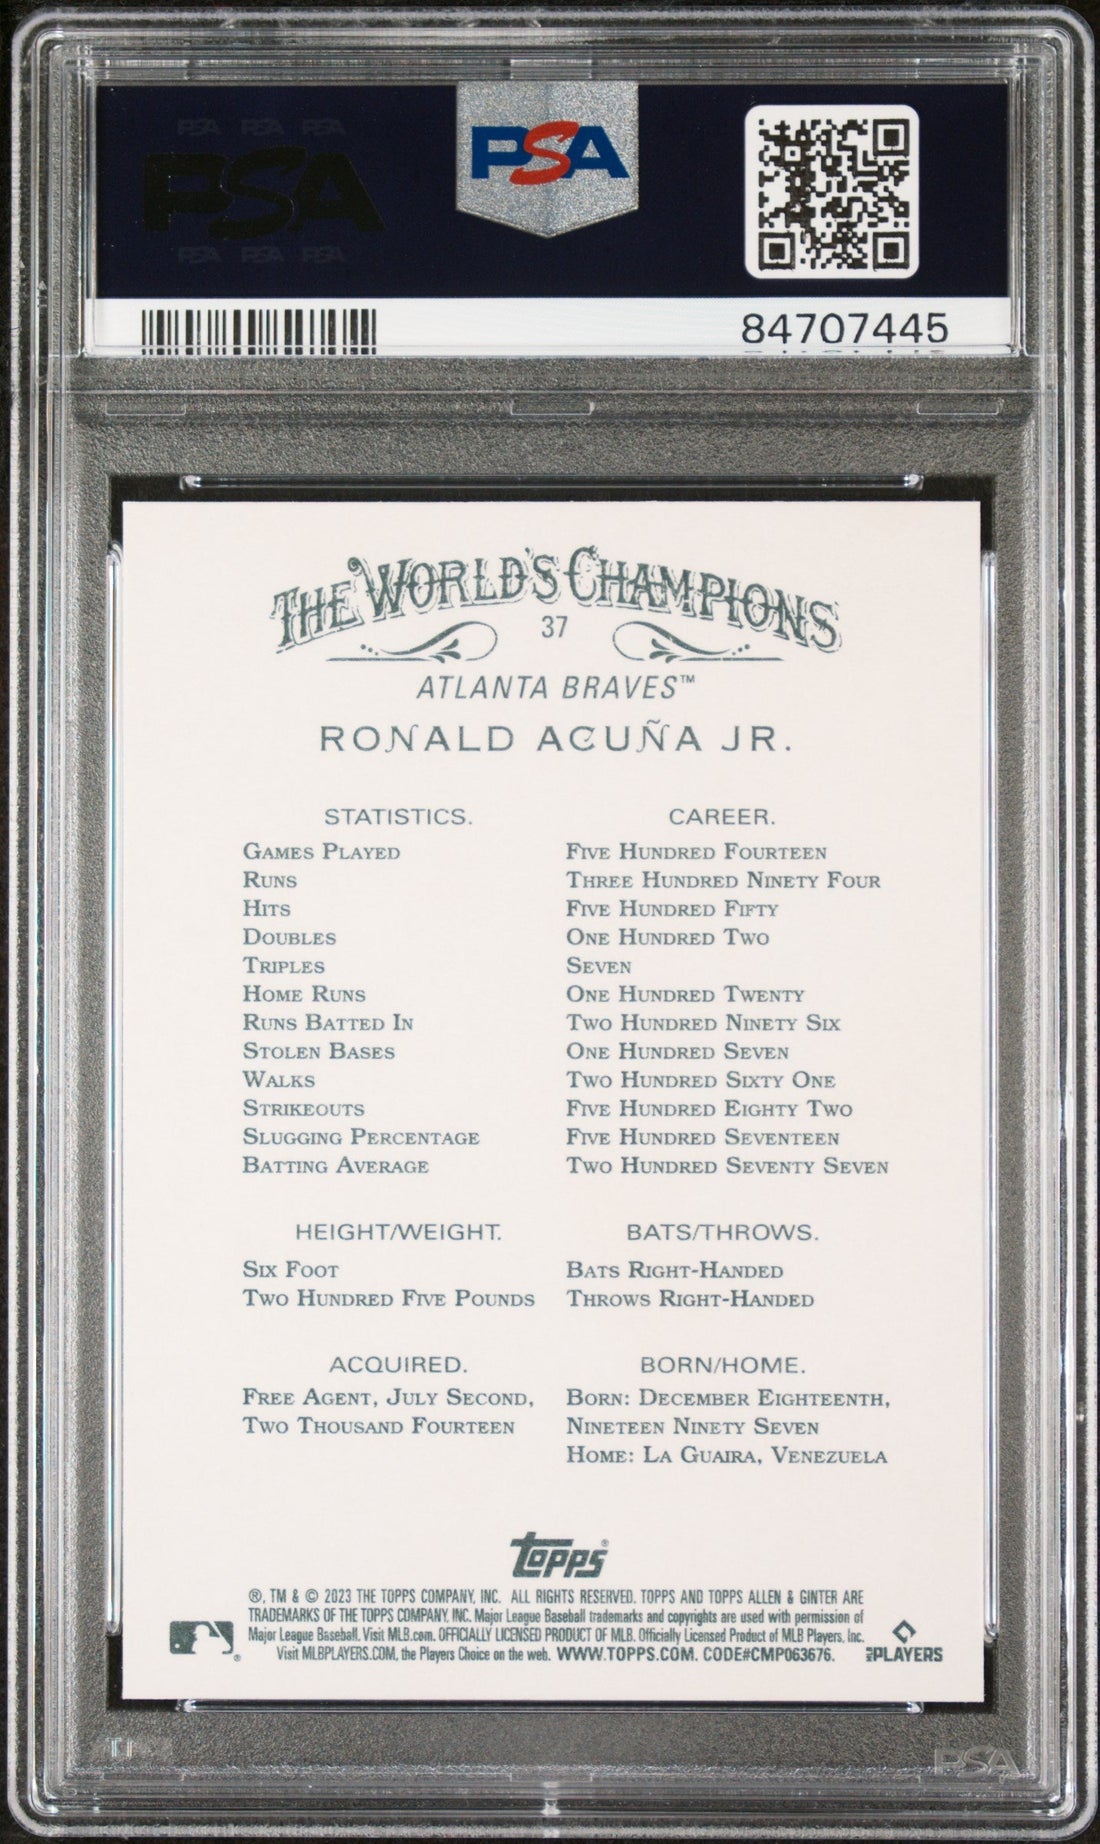 PSA PSA PSA
PSA
PSA PSA PSA
PSA
84707445
THE WORLD'S CHAMPIONS
37
ATLANTA BRAVES™
RONALD ACUÑA JR.
STATISTICS. CAREER.
GAMES PLAYED FIVE HUNDRED FOURTEEN
RUNS THREE HUNDRED NINETY FOUR
HITS FIVE HUNDRED FIFTY
DOUBLES ONE HUNDRED TWO
TRIPLES SEVEN
HOME RUNS ONE HUNDRED TWENTY
RUNS BATTED IN TWO HUNDRED NINETY SIX
STOLEN BASES ONE HUNDRED SEVEN
WALKS TWO HUNDRED SIXTY ONE
STRIKEOUTS FIVE HUNDRED EIGHTY TWO
SLUGGING PERCENTAGE FIVE HUNDRED SEVENTEEN
BATTING AVERAGE TWO HUNDRED SEVENTY SEVEN
HEIGHT/WEIGHT. BATS/THROWS.
SIX FOOT BATS RIGHT-HANDED
TWO HUNDRED FIVE POUNDS THROWS RIGHT-HANDED
ACQUIRED. BORN/HOME.
FREE AGENT, JULY SECOND, BORN: DECEMBER EIGHTEENTH,
TWO THOUSAND FOURTEEN NINETEEN NINETY SEVEN
HOME: LA GUAIRA, VENEZUELA
topps®
®, TM & © 2023 THE TOPPS COMPANY, INC. ALL RIGHTS RESERVED. TOPPS AND TOPPS ALLEN & GINTER ARE
TRADEMARKS OF THE TOPPS COMPANY, INC. Major League Baseball trademarks and copyrights are used with permission of
Major League Baseball. Visit MLB.com. OFFICIALLY LICENSED PRODUCT OF MLB. Officially Licensed Product of MLB Players, Inc.
Visit MLBPLAYERS.COM, the Players Choice on the web. WWW.TOPPS.COM. CODE#CMP063676.
MLB PLAYERS
PSA